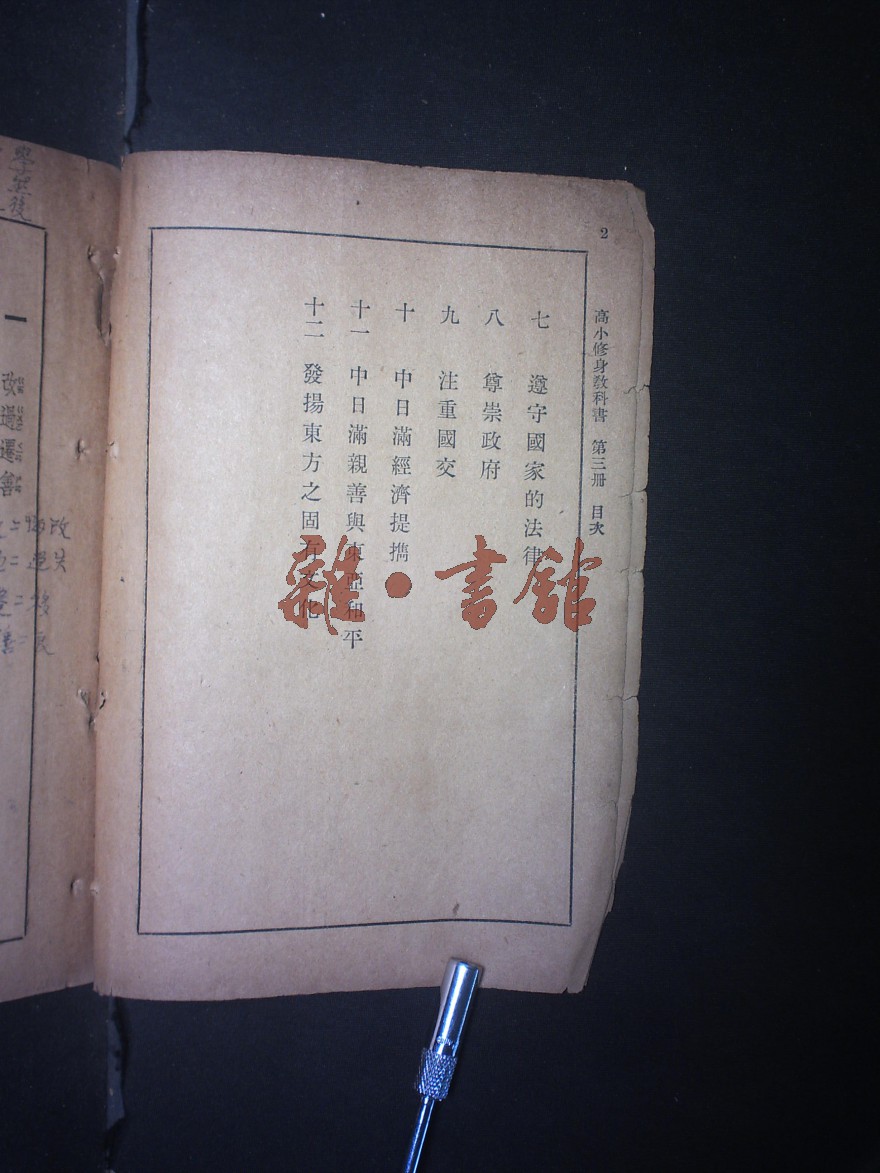 2
高小修身教科書 第三册 目次
七 遵守國家的法律
八 尊崇政府
九 注重國交
十 中日滿經濟提携
十一 中日滿親善與東亞和平
十二 發揚東方之固有文化
雜·書館
一 改過遷善